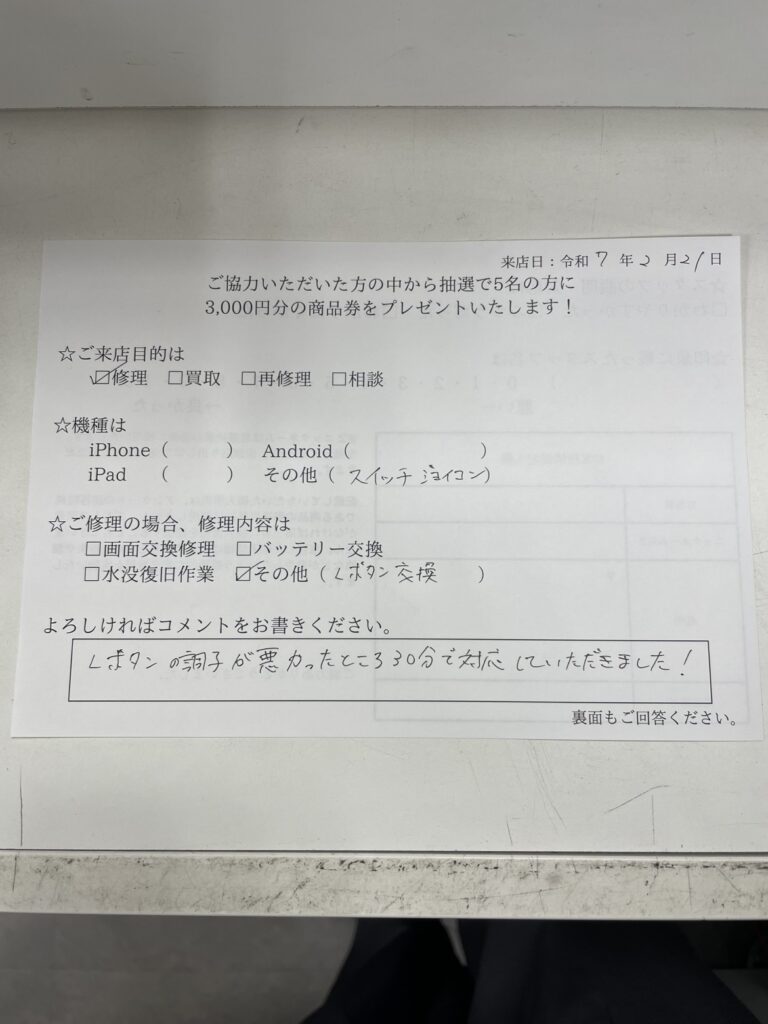 来店日：令和 7 年 2 月 21 日
ご協力いただいた方の中から抽選で5名の方に
3,000円分の商品券をプレゼントいたします！
☆ご来店目的は
☑修理 □買取 □再修理 □相談
☆機種は
iPhone（　　　） Android（　　　　　　）
iPad （　　　） その他（ スイッチ ジョイコン）
☆ご修理の場合、修理内容は
□画面交換修理 □バッテリー交換
□水没復旧作業 ☑その他（ Lボタン交換 ）
よろしければコメントをお書きください。
Lボタンの調子が悪かったところ30分で対応していただきました！
裏面もご回答ください。